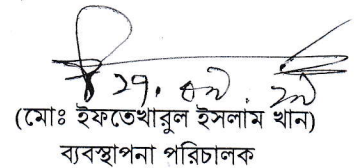 (মোঃ ইফতেখারুল ইসলাম খান)
ব্যবস্থাপনা পরিচালক